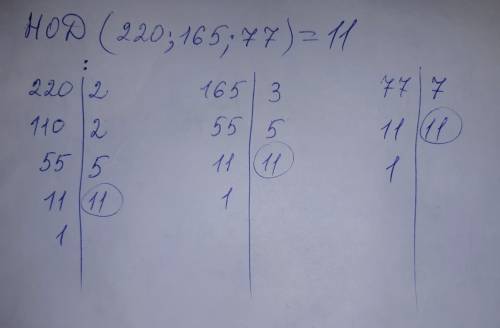 НОД (220;165;77)=11
:
220 | 2 165 | 3 77 | 7
110 | 2 55 | 5 11 | 11
55 | 5 11 | 11 1 |
11 | 11 1 |
1 |